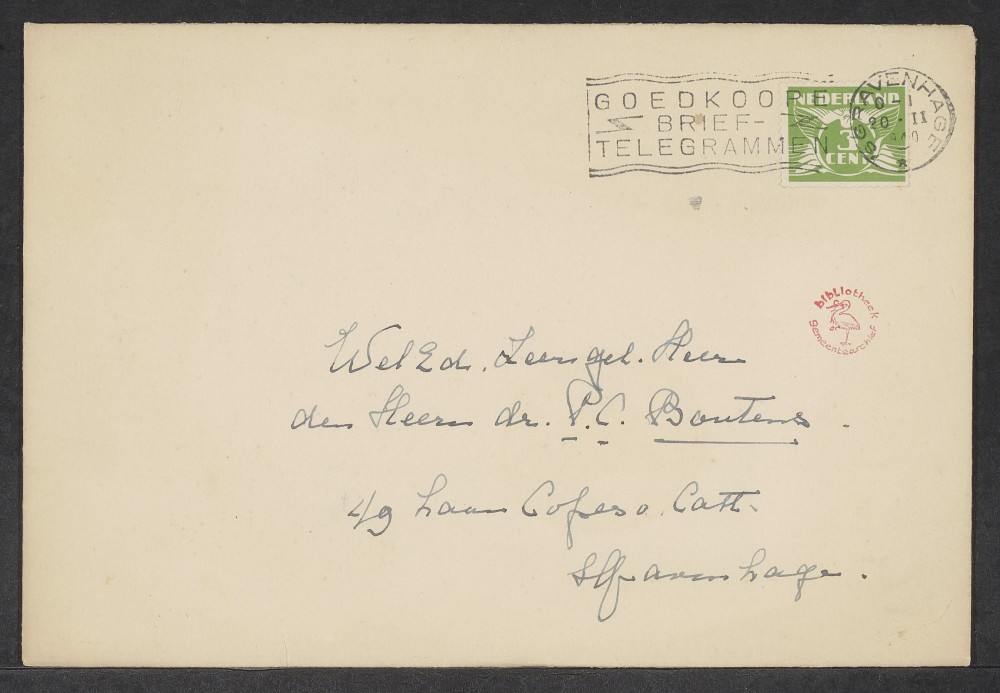 GOEDKOOPE
BRIEF-
TELEGRAMMEN
NEDERLAND
3
CENT
'SGRAVENHAGE
0-1
20·II
940
bibliotheek
gemeentearchief
WelEdr. Zeergel. Heer
den Heern dr. P.C. Boutens.
49 Laan Copes v. Catt.
's Gravenhage.